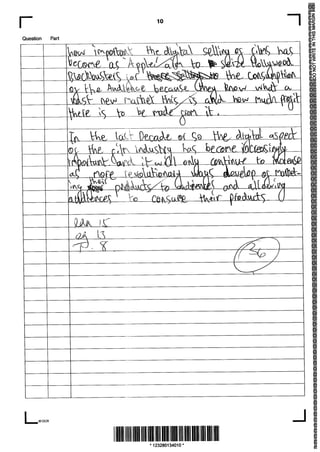 10
Question Part
how important the digital selling of films has
become as "Apple aim to seize Hollywood
Blockbusters" for the consumption
of the Audience because they know what a
vast new market this is and how much profit
there is to be made from it.
In the last Decade or so the digital aspect
of the film industry has become increasingly
important and it will only continue to increase
as more revolutionary ways develop of market-
ing their products to audiences and allowing
audiences to consume their products.
15
13
T 8
36
* 123280134010 *